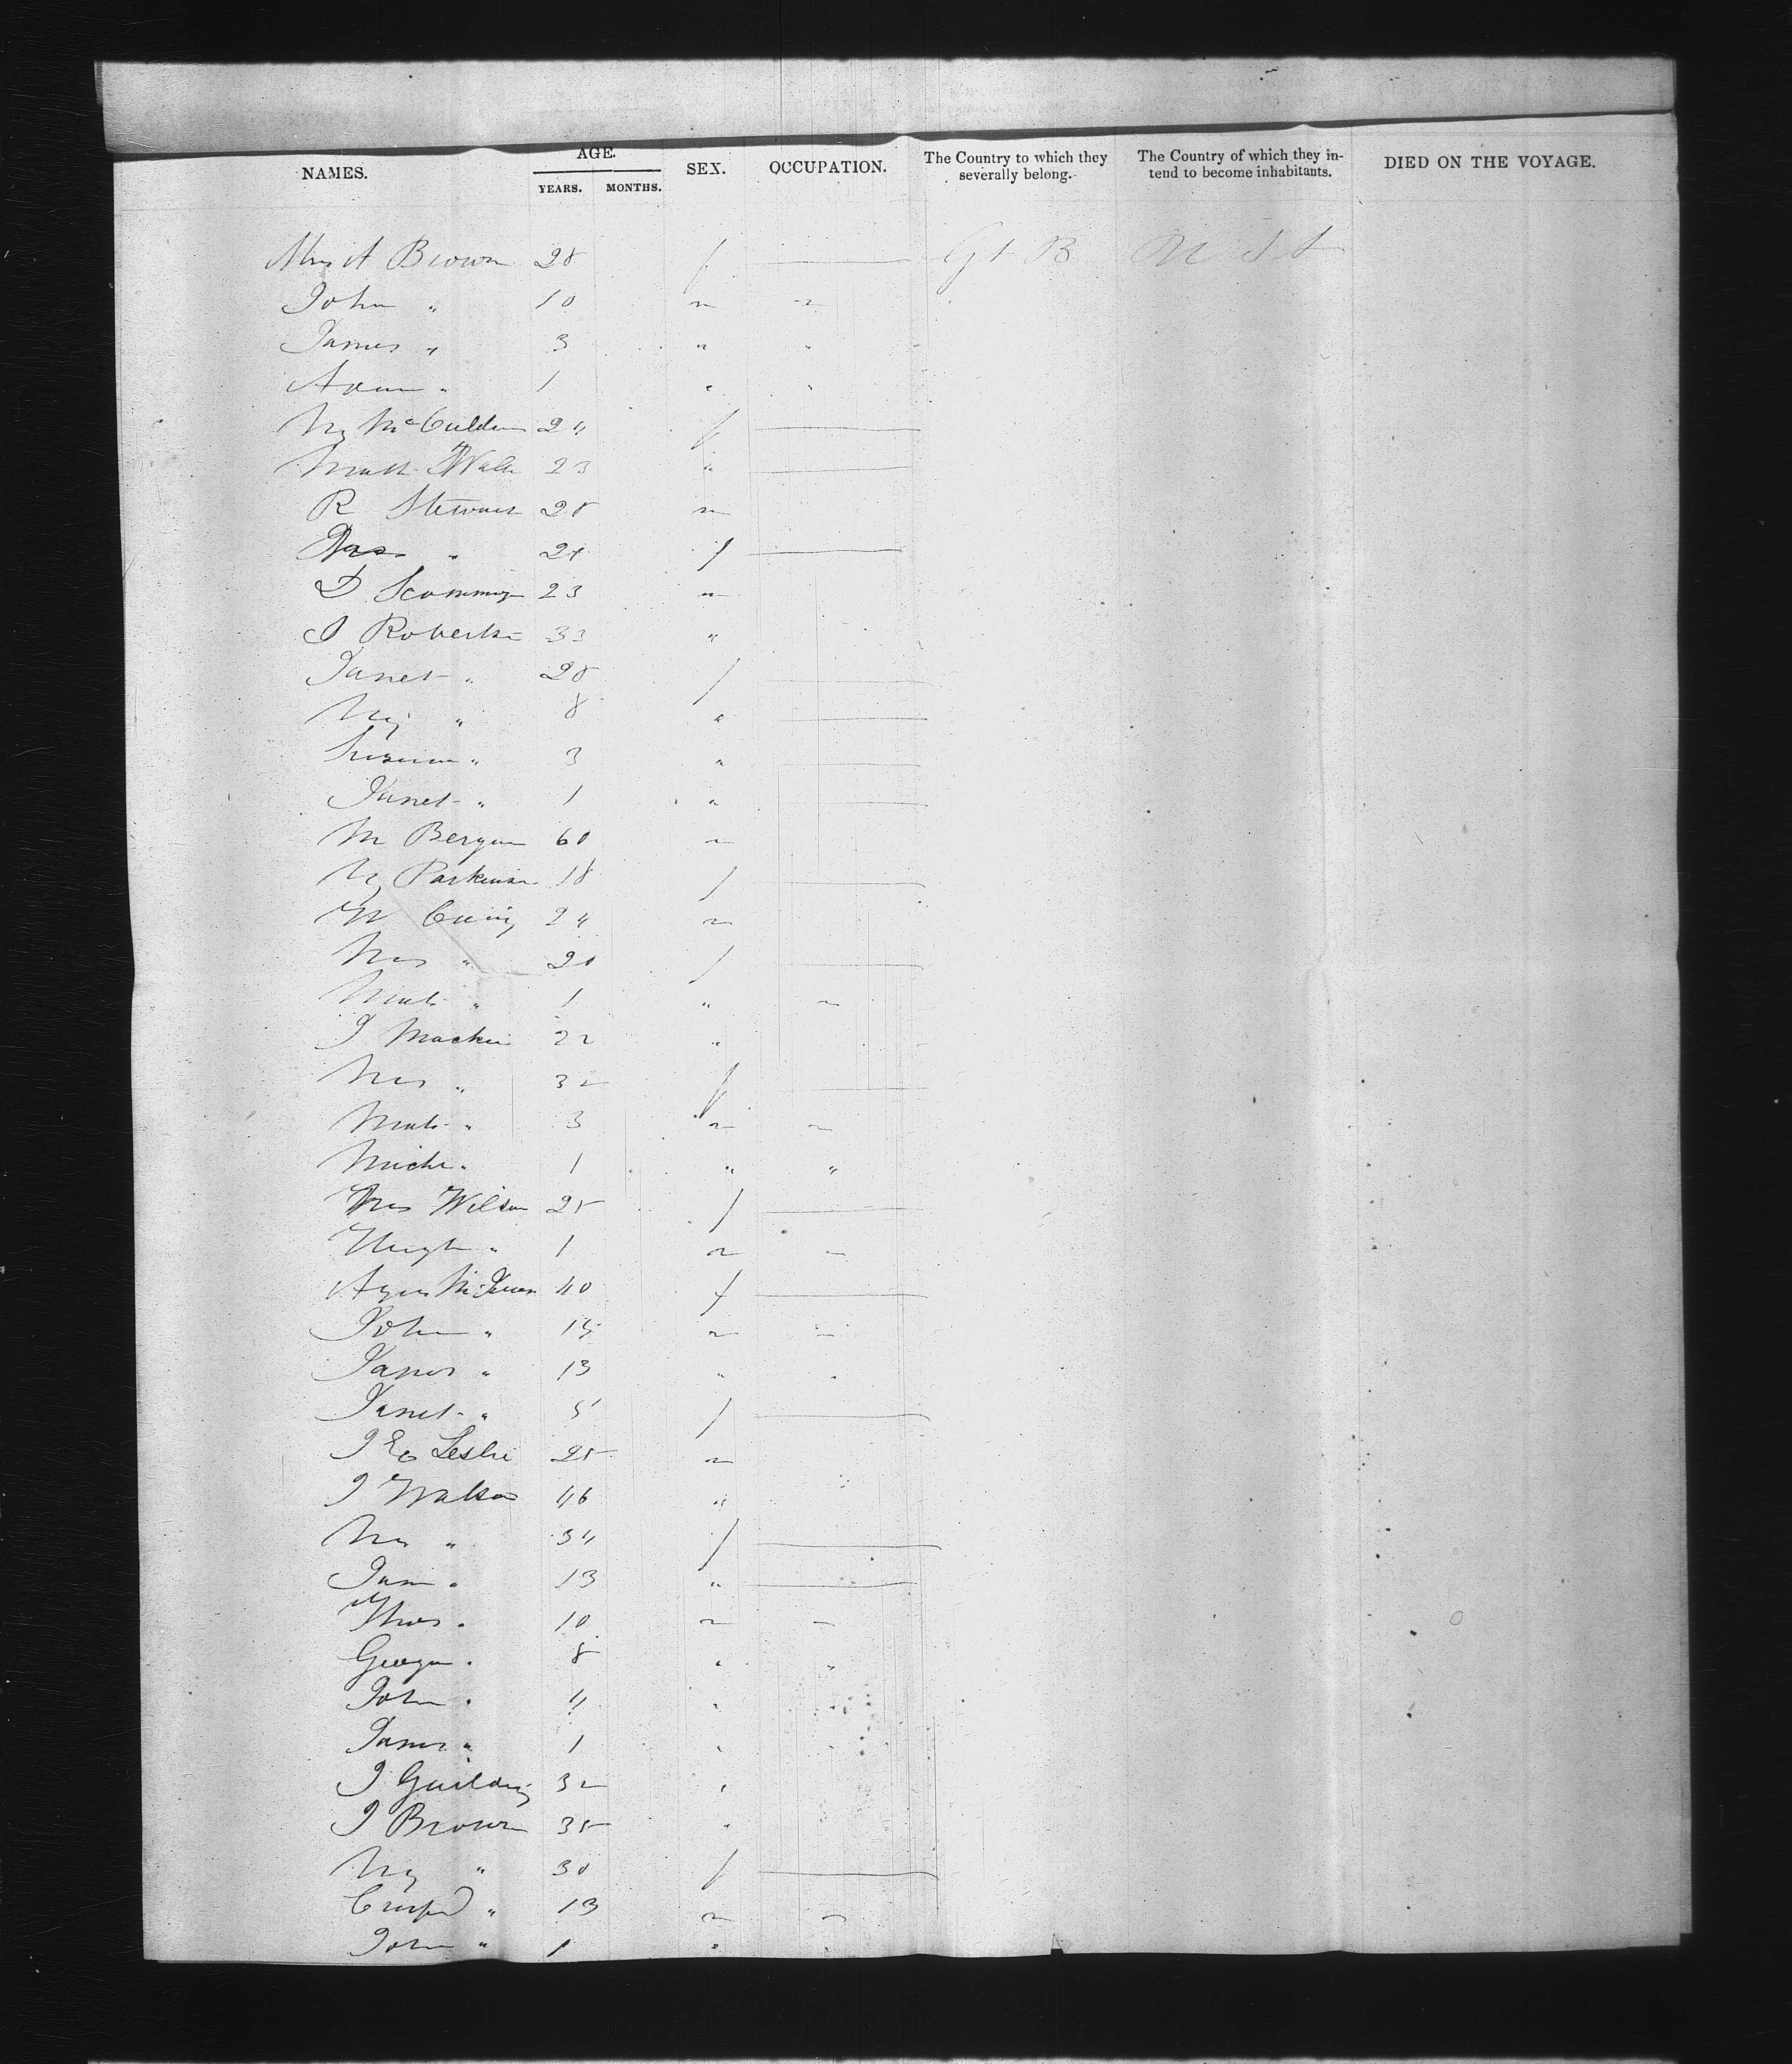 NAMES. AGE. YEARS. MONTHS. SEX. OCCUPATION. The Country to which they severally belong. The Country of which they intend to become inhabitants. DIED ON THE VOYAGE.
Mrs A Brown 28 f — Gt B U S A
John " 10 m
James " 3 " "
Adam " 1 " "
24 f —
23 " —
R Stewart 28 m
Mrs " 24 f —
D 23 m
J Robertson 33 "
Janet " 28 f —
Mg " 8 " —
Susana " 3 " —
Janet " 1 " —
M Bergan 60 m
Mg Parkinson 18 f —
W 24 m
Mrs " 20 f —
1 "
J Mackie 22 "
Mrs " 32 f —
3 m
1 " "
Mrs Wilson 25 f —
Hugh " 1 m
Agnes 40 f —
John " 15 m
James " 13 "
Janet " 5 f —
J Leslie 25 m
J Watson 46 "
Mrs " 34 f —
Jane " 13 " —
Thos " 10 m
George " 8 " "
John " 4 "
James " 1 "
J 32 "
J Brown 35 "
Mg " 30 f —
13 m
John " 1 "